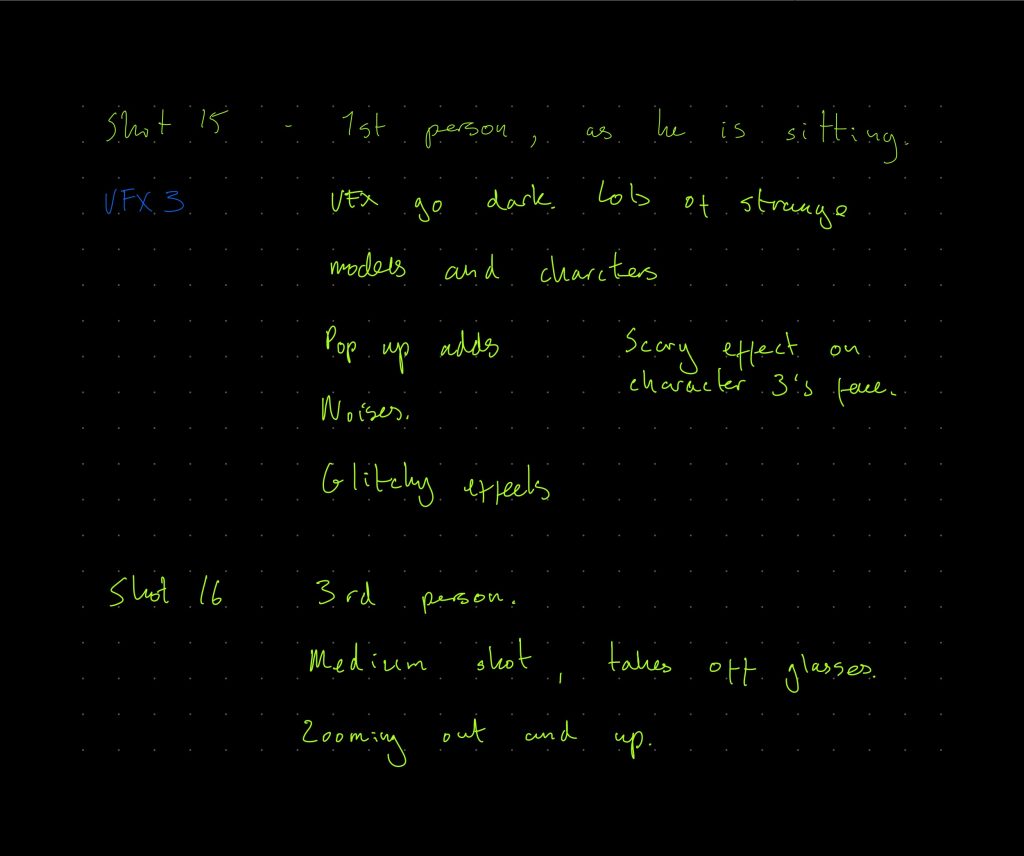 Shot 15 - 1st person, as he is sitting.
VFX 3 VFX go dark. Lots of strange
models and charcters
Pop up adds Scary effect on
character 3's face.
Noises.
Glitchy effects
Shot 16 3rd person.
Medium shot, takes off glasses.
Zooming out and up.